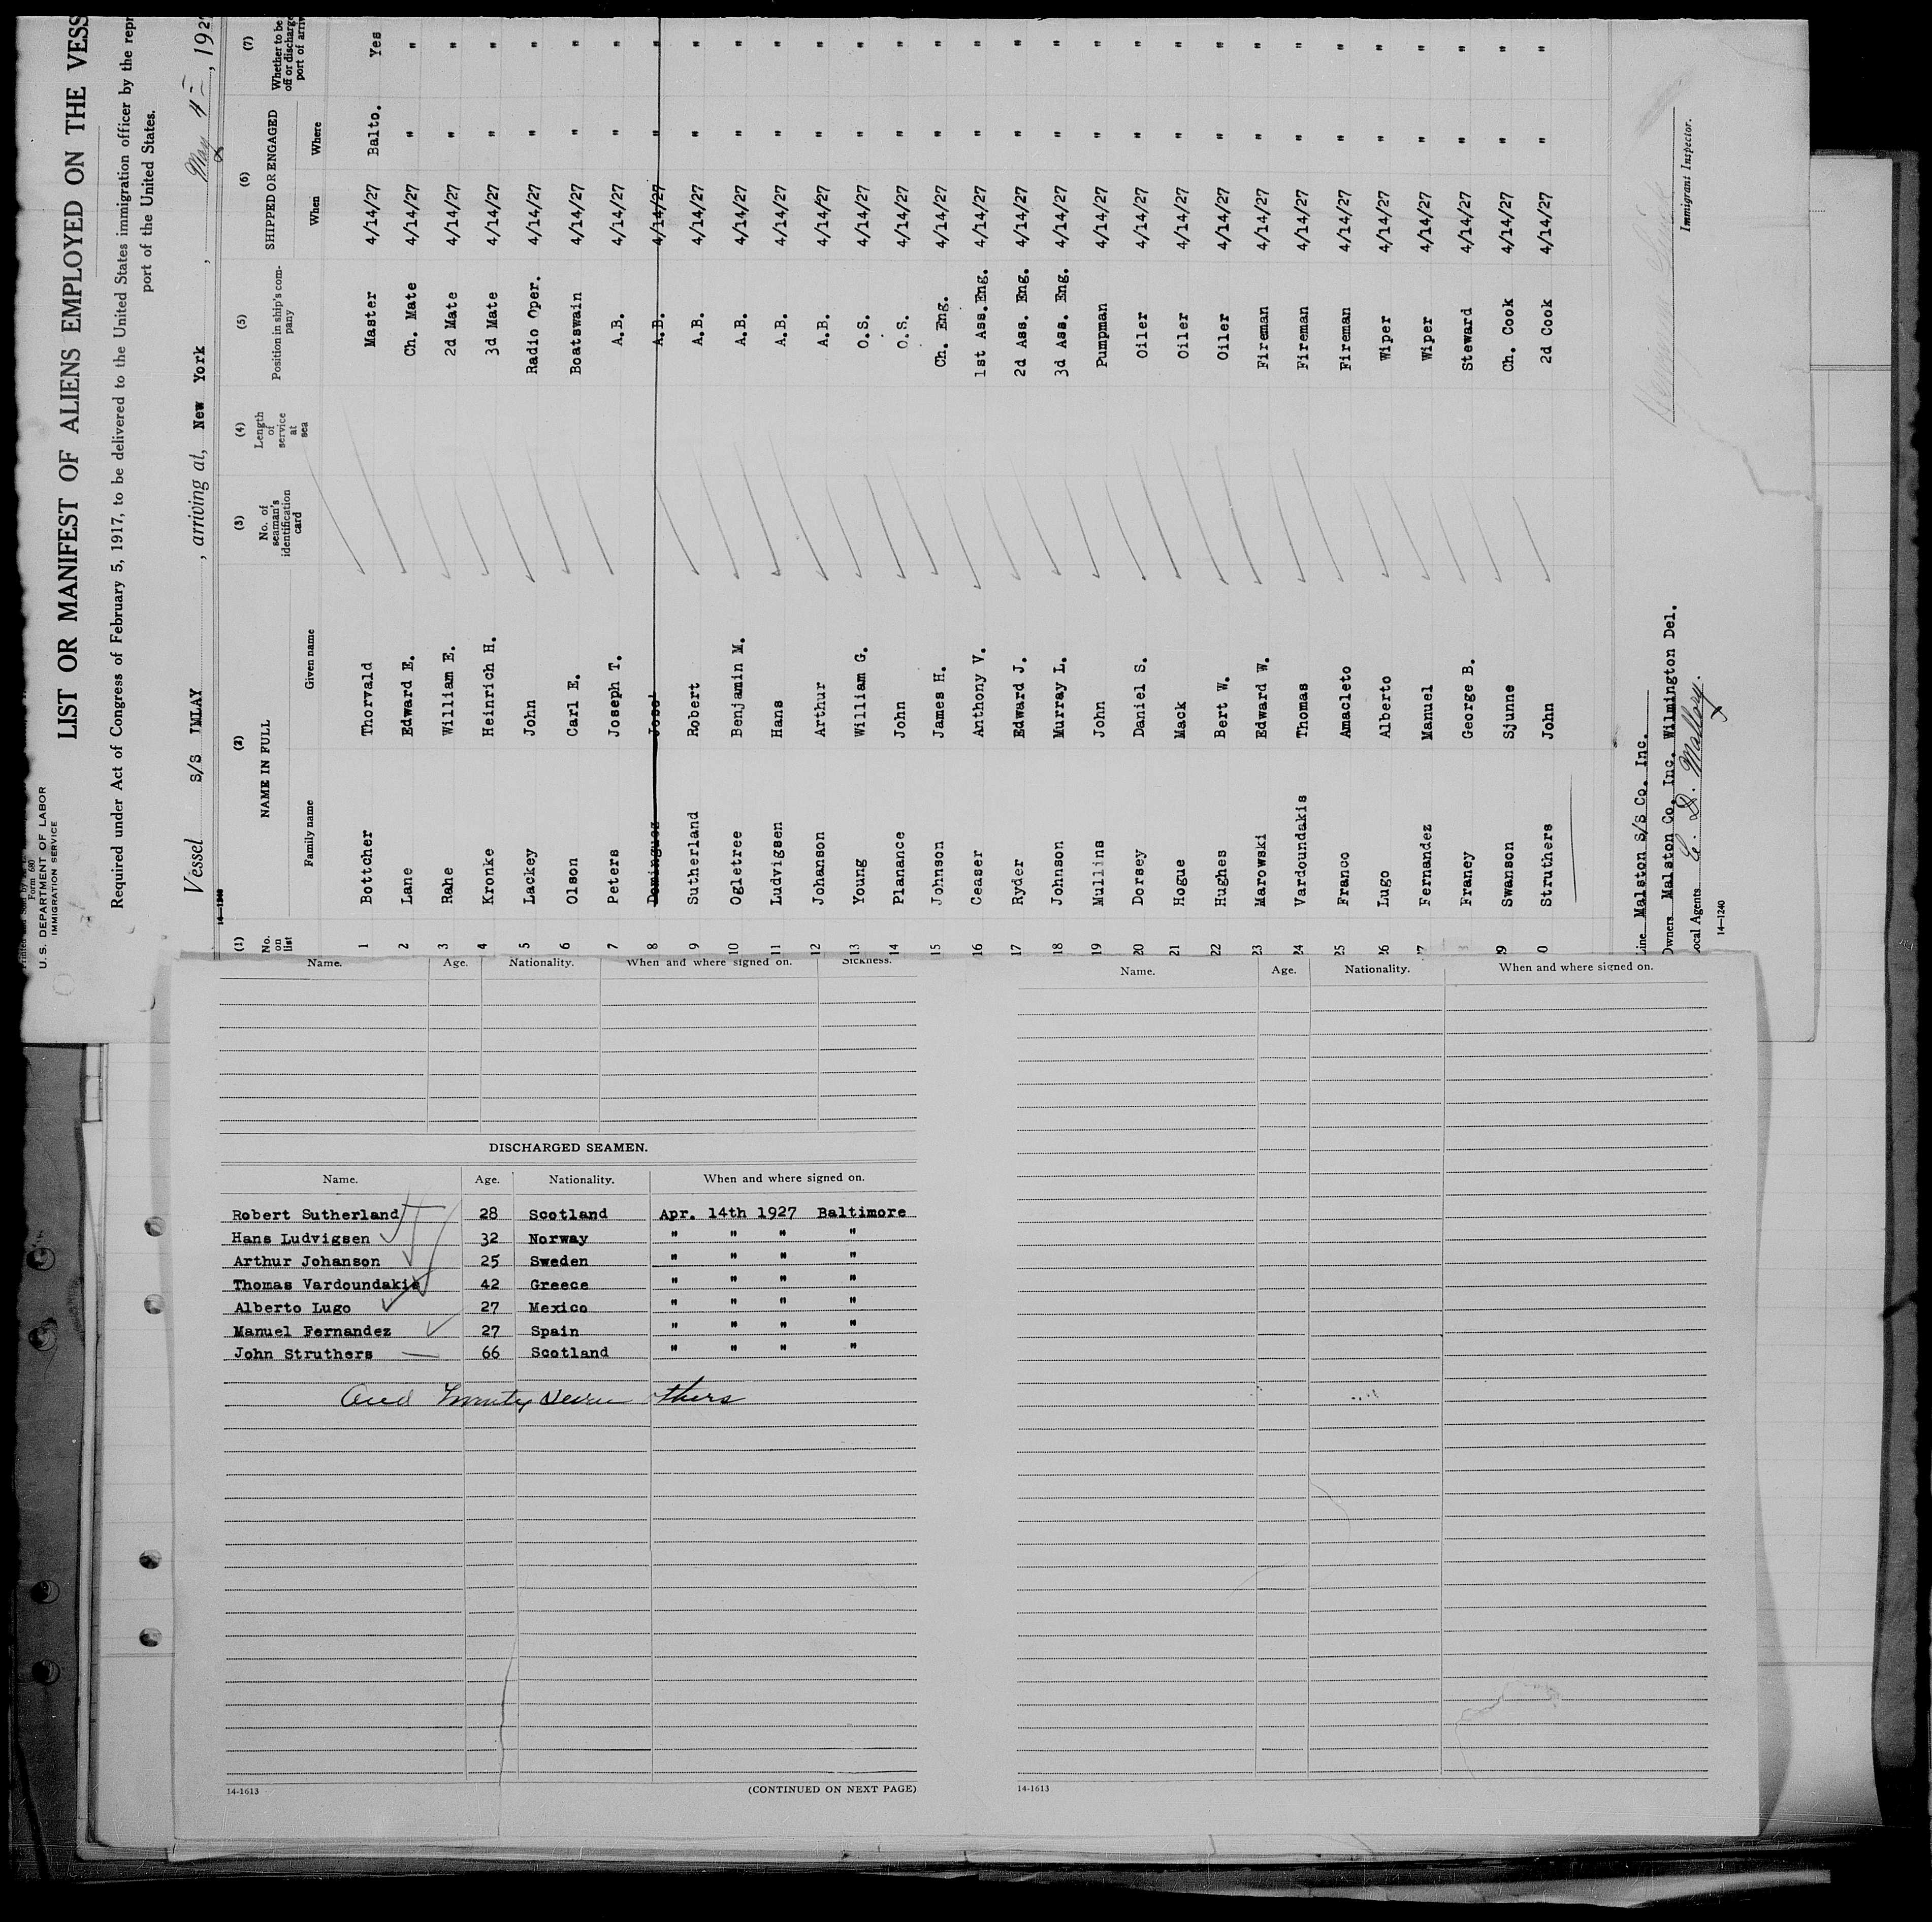 Form 680
U.S. DEPARTMENT OF LABOR
IMMIGRATION SERVICE
LIST OR MANIFEST OF ALIENS EMPLOYED ON THE VESS
Required under Act of Congress of February 5, 1917, to be delivered to the United States immigration officer by the repr
port of the United States.
Vessel S/S IMLAY, arriving at, New York, May 4, 192
14—1240
(1) (2) (3) (4) (5) (6) (7)
No. on list NAME IN FULL No. of seaman's identification card Length of service at sea Position in ship's company SHIPPED OR ENGAGED Whether to be off or discharge port of arriv
Family name Given name When Where
1 Bottcher Thorvald Master 4/14/27 Balto. Yes
2 Lane Edward E. Ch. Mate 4/14/27 " "
3 Rahe William E. 2d Mate 4/14/27 " "
4 Kronke Heinrich H. 3d Mate 4/14/27 " "
5 Lackey John Radio Oper. 4/14/27 " "
6 Olson Carl E. Boatswain 4/14/27 " "
7 Peters Joseph T. A.B. 4/14/27 " "
8 Dominguez Jose' A.B. 4/14/27 " "
9 Sutherland Robert A.B. 4/14/27 " "
10 Ogletree Benjamin M. A.B. 4/14/27 " "
11 Ludvigsen Hans A.B. 4/14/27 " "
12 Johanson Arthur A.B. 4/14/27 " "
13 Young William G. O.S. 4/14/27 " "
14 Planance John O.S. 4/14/27 " "
15 Johnson James H. Ch. Eng. 4/14/27 " "
16 Ceaser Anthony V. 1st Ass.Eng. 4/14/27 " "
17 Ryder Edward J. 2d Ass. Eng. 4/14/27 " "
18 Johnson Murray L. 3d Ass. Eng. 4/14/27 " "
19 Mullins John Pumpman 4/14/27 " "
20 Dorsey Daniel S. Oiler 4/14/27 " "
21 Hogue Mack Oiler 4/14/27 " "
22 Hughes Bert W. Oiler 4/14/27 " "
23 Marowski Edward W. Fireman 4/14/27 " "
24 Vardoundakis Thomas Fireman 4/14/27 " "
25 Franco Amacleto Fireman 4/14/27 " "
26 Lugo Alberto Wiper 4/14/27 " "
7 Fernandez Manuel Wiper 4/14/27 " "
Franey George B. Steward 4/14/27 " "
9 Swanson Sjunne Ch. Cook 4/14/27 " "
0 Struthers John 2d Cook 4/14/27 " "
Line Malston S/S Co. Inc.
Owners Malston Co. Inc. Wilmington Del.
Local Agents E. D. Malloy.
Immigrant Inspector.
14—1240
Name. Age. Nationality. When and where signed on. Sickness.
DISCHARGED SEAMEN.
Name. Age. Nationality. When and where signed on.
Robert Sutherland 28 Scotland Apr. 14th 1927 Baltimore
Hans Ludvigsen 32 Norway " " " "
Arthur Johanson 25 Sweden " " " "
Thomas Vardoundakis 42 Greece " " " "
Alberto Lugo 27 Mexico " " " "
Manuel Fernandez 27 Spain " " " "
John Struthers 66 Scotland " " " "
And Twenty Seven others
14-1613
(CONTINUED ON NEXT PAGE)
Name. Age. Nationality. When and where signed on.
14-1613